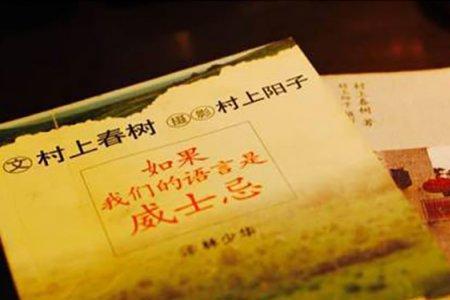 文 村上春树 摄影 村上阳子
如果
我们的语言是
威士忌
译 林少华
村上春树 著